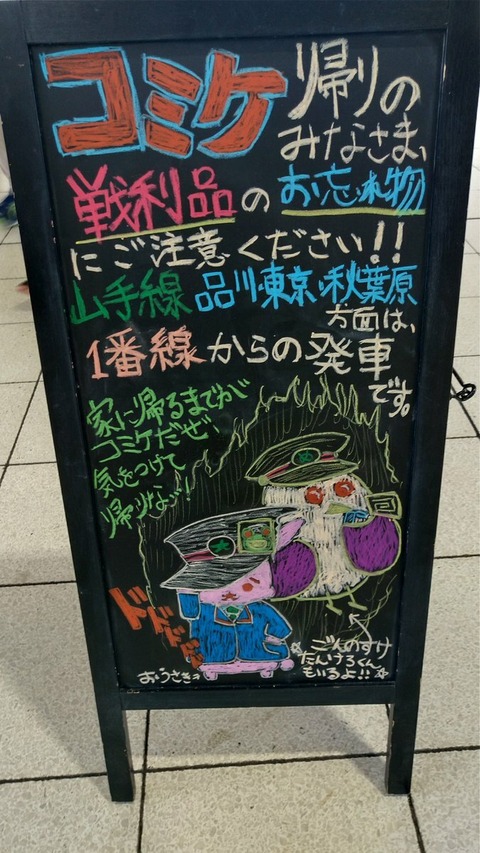 コミケ帰りの
みなさま、
戦利品のお忘れ物
にご注意ください!!
山手線 品川・東京・秋葉原
方面は、
1番線からの発車
です。
家に帰るまでが
コミケだぜ!
気をつけて
帰りな!
ドドドドド
おうさき→
ごんのすけ
たんけろくん
もいるよ!!